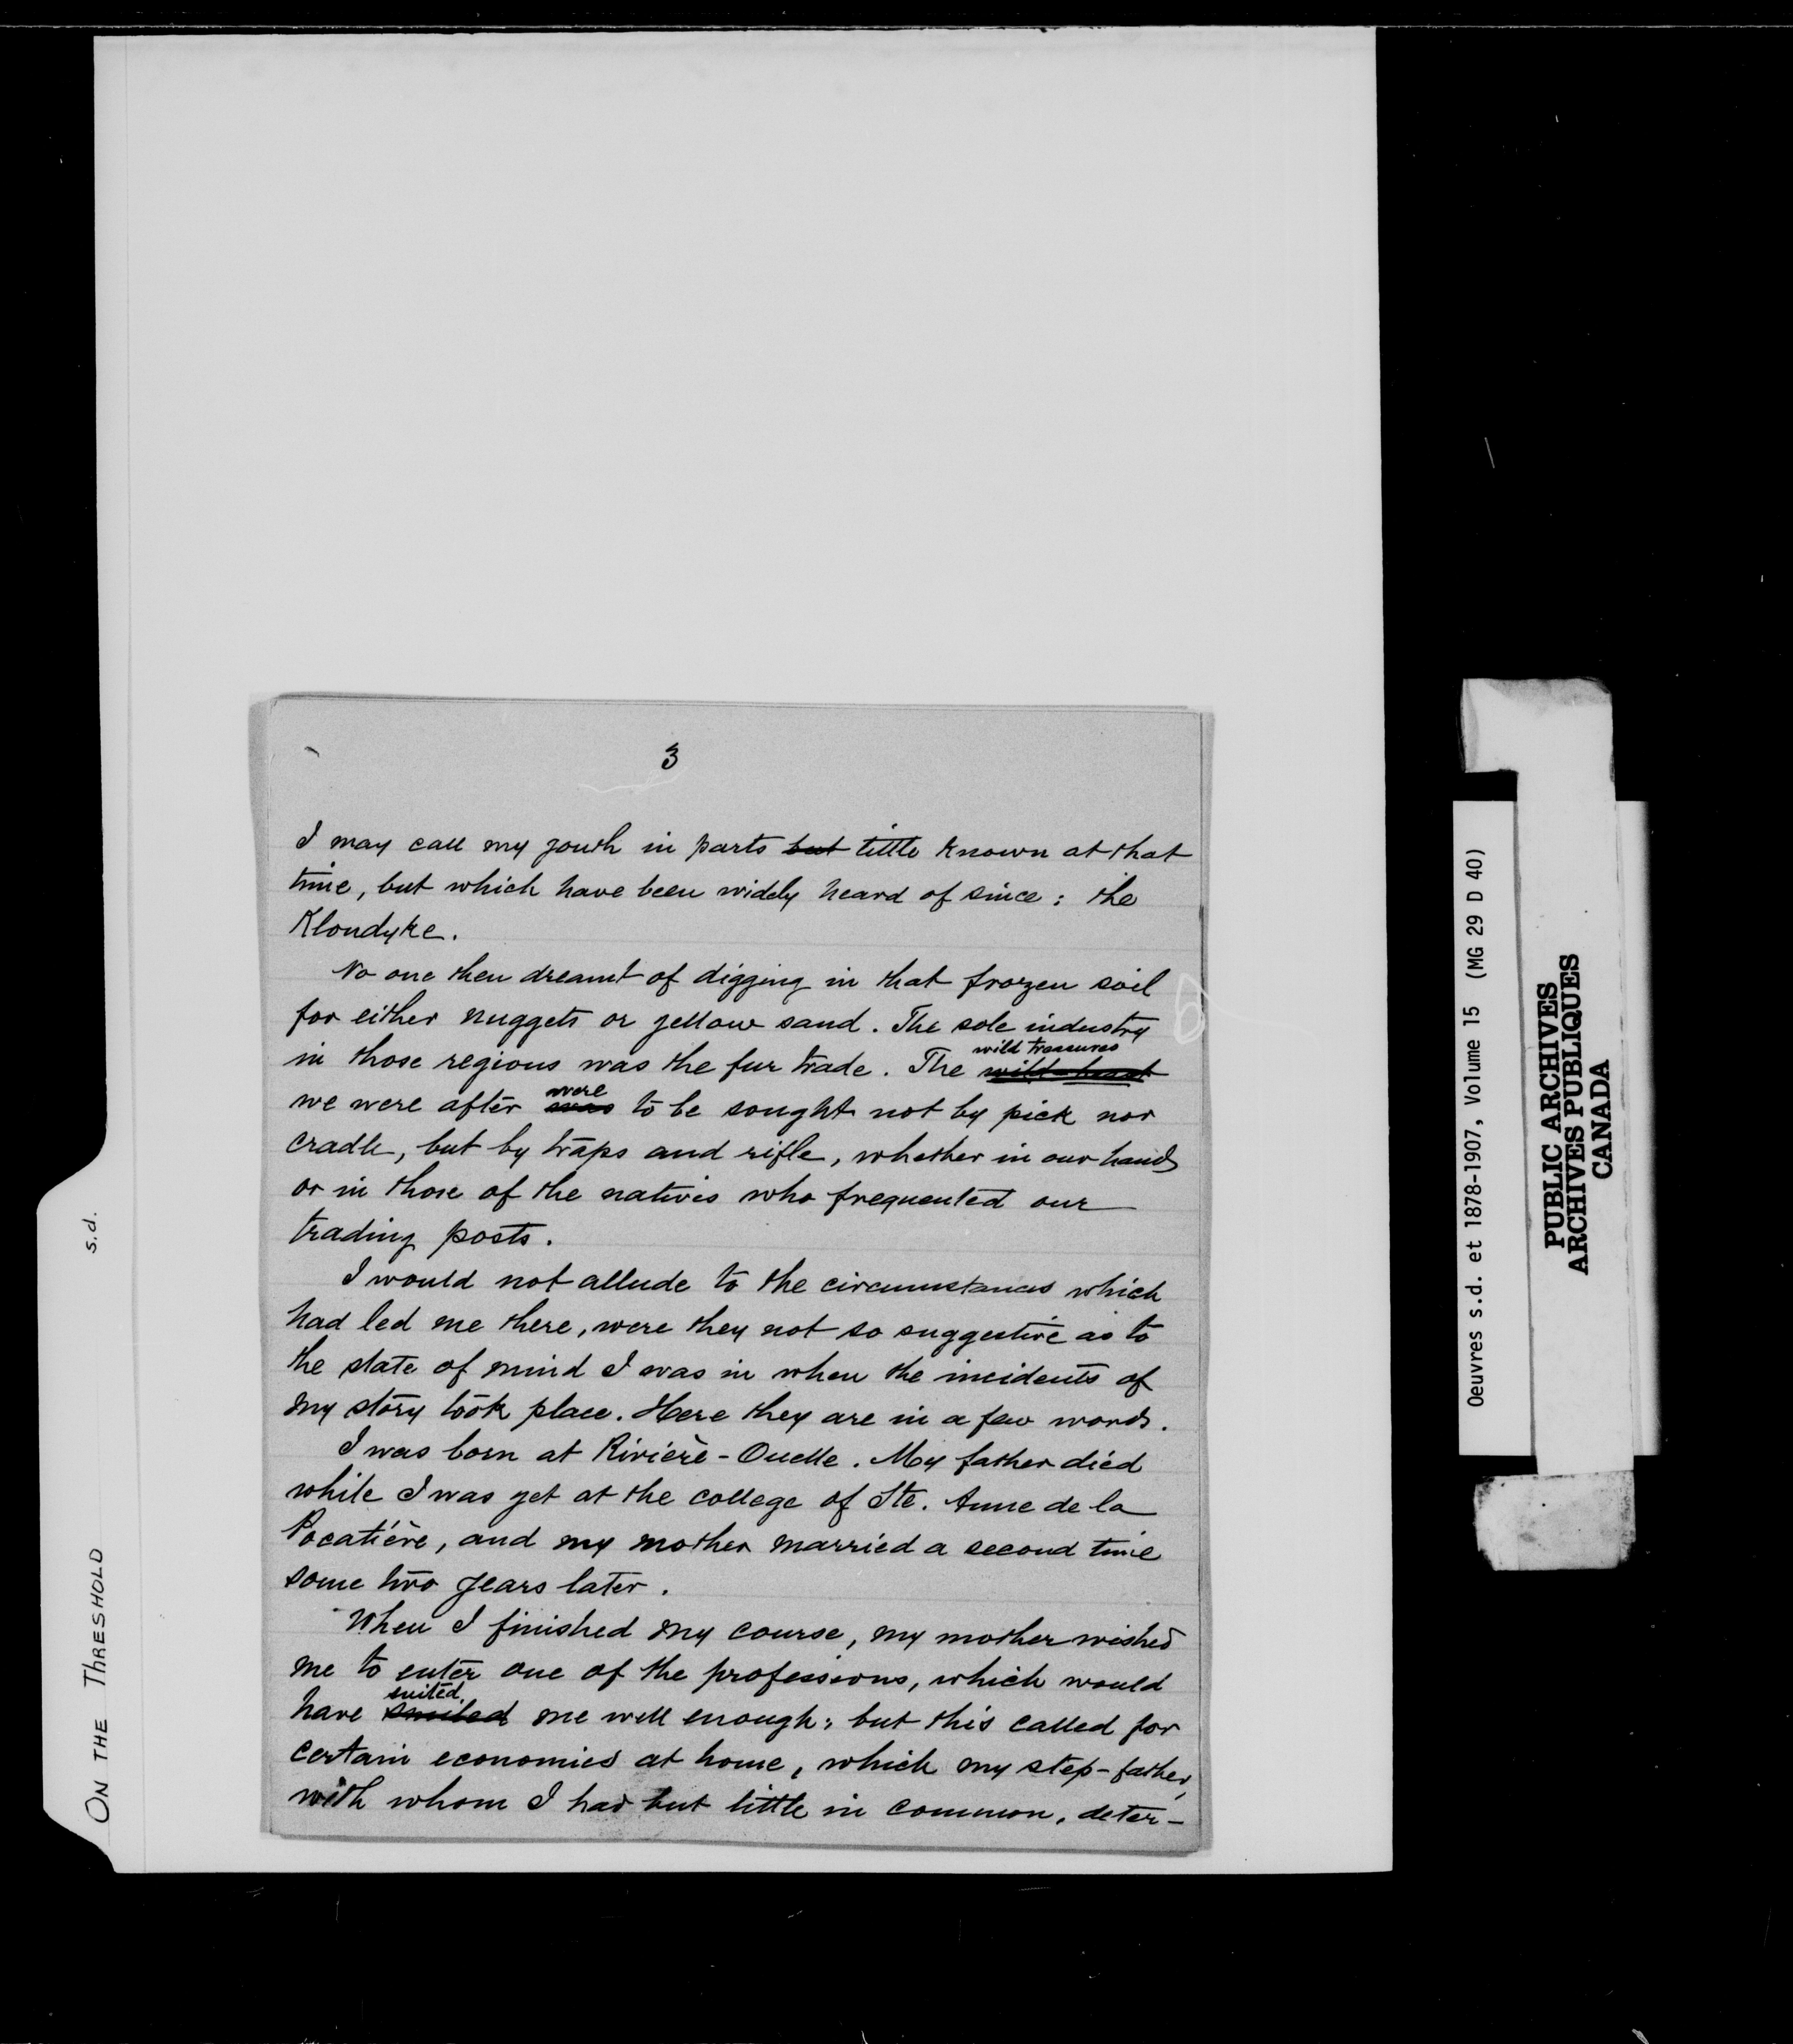 3
I may call my youth in parts but little known at that
time, but which have been widely heard of since: the
Klondyke.
No one then dreamt of digging in that frozen soil
for either nuggets or yellow sand. The sole industry
wild treasures
in those regions was the fur trade. The
were
we were after was to be sought not by pick nor
cradle, but by traps and rifle, whether in our hands
or in those of the natives who frequented our
trading posts.
I would not allude to the circumstances which
had led me there, were they not so suggestive as to
the state of mind I was in when the incidents of
my story took place. Here they are in a few words.
I was born at Rivière-Ouelle. My father died
while I was yet at the college of Ste. Anne de la
Pocatière, and my mother married a second time
some two years later.
When I finished my course, my mother wished
me to enter one of the professions, which would
suited
have me well enough; but this called for
certain economies at home, which my step-father,
with whom I had but little in common, deter-
ON THE THRESHOLD s.d.
Oeuvres s.d. et 1878-1907, Volume 15 (MG 29 D 40)
PUBLIC ARCHIVES
ARCHIVES PUBLIQUES
CANADA